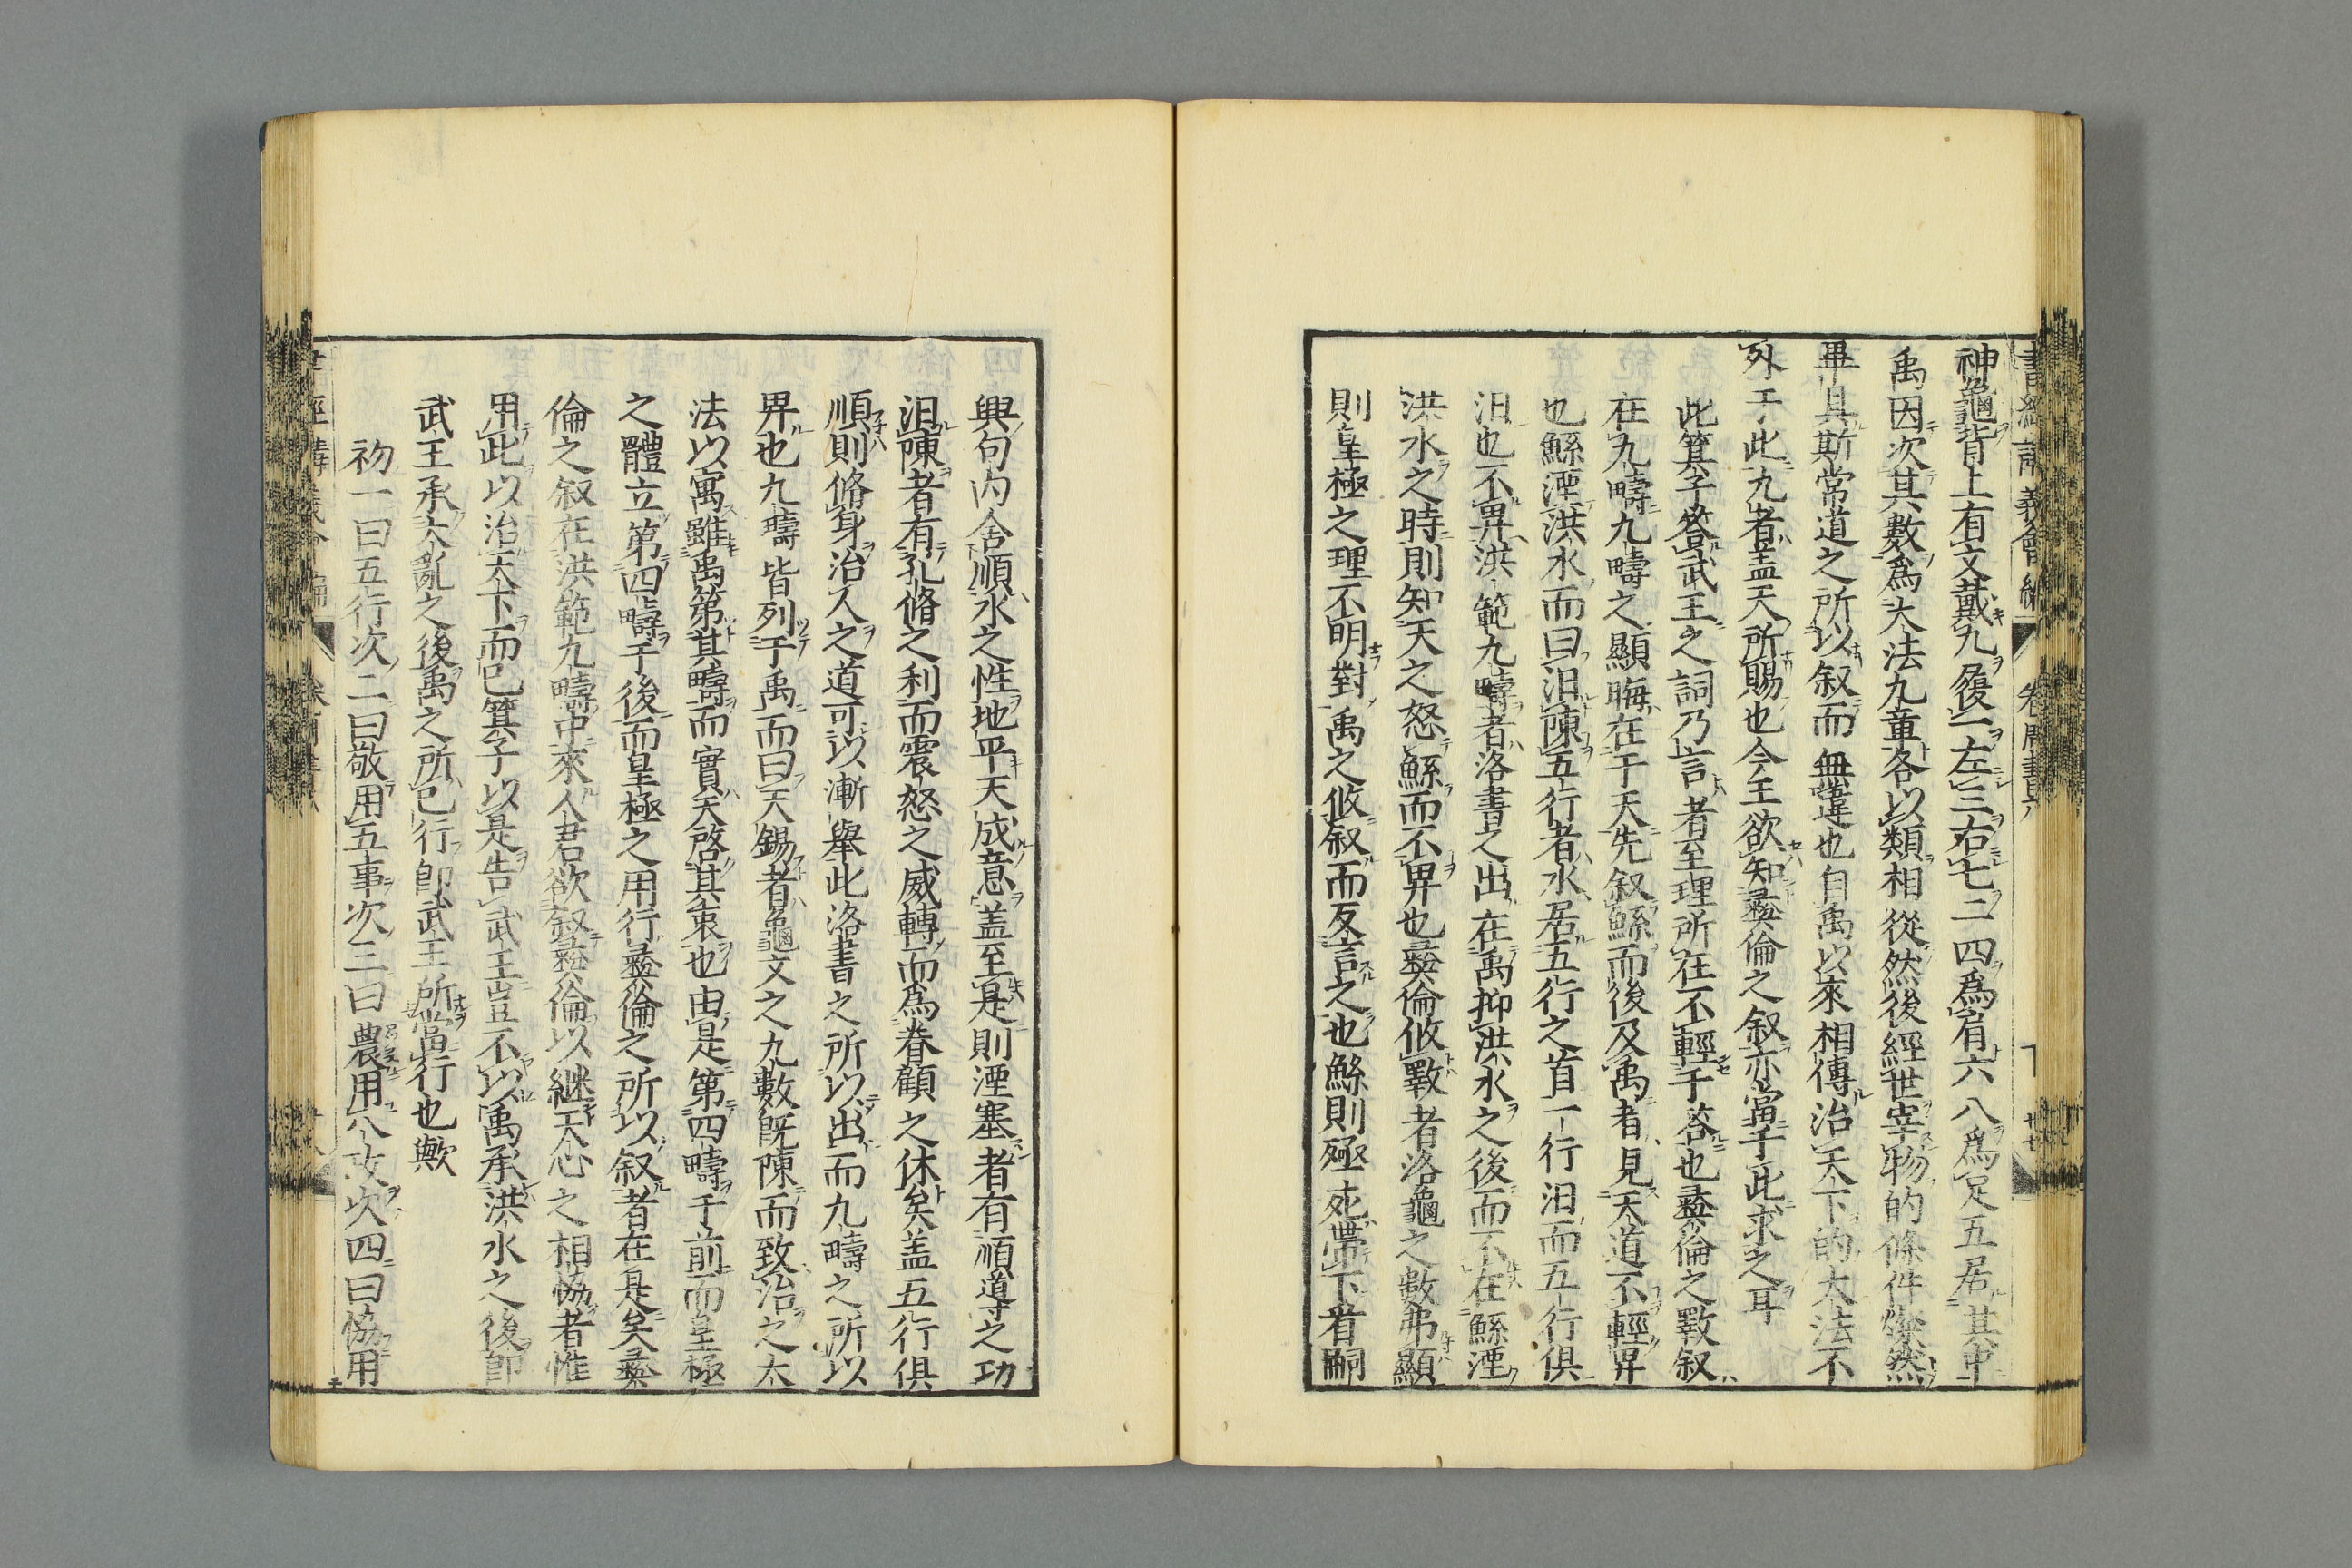 神龜背上有文戴九履一左三右七二四爲肩六八爲足五居其中
禹因次其數爲大法九章各以類相從然後經世宰物的條件燦然
畢具斯常道之所以叙而無違也自禹以來相傳治天下的大法不
外于此九者盖天所賜也今王欲知彝倫之叙亦當于此求之耳
此箕子答武王之詞乃言者至理所在不輕于答也彝倫之斁叙
在九疇九疇之顯晦在于天先叙鯀而後及禹者見天道不輕畀
也鯀湮洪水而曰汩陳五行者水居五行之首一行汩而五行俱
汩也不畀洪範九疇者洛書之出在禹抑洪水之後而不在鯀湮
洪水之時則知天之怒鯀而不畀也彝倫攸斁者洛龜之數弗顯
則皇極之理不明對禹之攸叙而反言之也鯀則殛死帶下看嗣
興句内含順水之性地平天成意盖至是則湮塞者有順導之功
汩陳者有孔脩之利而震怒之威轉而爲眷顧之休矣盖五行俱
順則脩身治人之道可以漸舉此洛書之所以出而九疇之所以
畀也九疇皆列于禹而曰天錫者龜文之九數既陳而致治之大
法以寓雖禹第其疇而實天啓其衷也由是第四疇于前而皇極
之體立第四疇于後而皇極之用行彝倫之所以叙者在是矣彝
倫之叙在洪範九疇中來人君欲叙彝倫以継天心之相協者惟
用此以治天下而已箕子以是告武王豈不以禹承洪水之後即
武王承大亂之後禹之所已行即武王所當行也歟
初一曰五行次二曰敬用五事次三曰農用八政次四曰協用